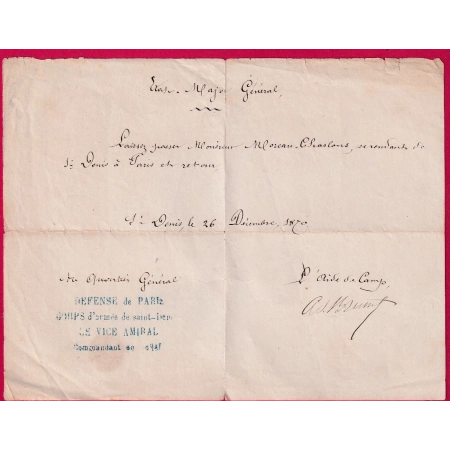 Etat-Major Général,
Laissez passer Monsieur Moreau-Chaslons, se rendant de
St Denis à Paris et retour
St Denis, le 26 Décembre, 1870
Au Quartier Général
DEFENSE de PARIS
CORPS d'armée de saint-Den
LE VICE AMIRAL
Commandant en chef
L'Aide de Camp,